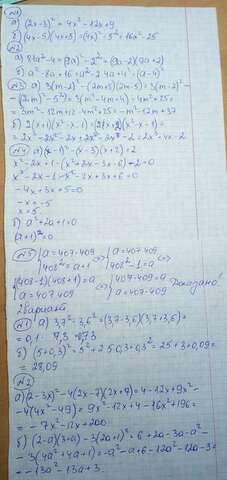 №1
а) (2x-3)² = 4x²-12x+9
б) (4x-5)(4x+5)=(4x)²-5²=16x²-25
№2
а) 81a²-4=(9a)²-2²=(9a-2)(9a+2)
б) a²-8a+16=a²-2·4a+4²=(a-4)²
№3 а) 3(m-2)²-(2m+5)(2m-5)=3(m-2)²-
-((2m)²-5²)=3(m²-4m+4)-4m²+25=
=3m²-12m+12-4m²+25=-m²-12m+37
б) 2(x+1)(x²-x-1)=(2x+2)(x²-x-1)=
=2x³-2x²-2x+2x²-2x-2=2x³-4x-2
№4 а) (x-1)²-(x-3)(x+2)
x²-2x+1-(x²+2x-3x-6)=0
-x=-5
x=5
б) a²+2a+1=0
(a+1)²=0
№5 a=407·409
408²=a+1
a=407·409
408²-1=a
(408-1)(408+1)=a
a=407·409
407·409=a
a=407·409
Доказано!
2 Вариант
№1 а) 3,7²-3,6²=(3,7-3,6)(3,7+3,6)=
=0,1·7,3=0,73
б) (5+0,3)²=5²+2·5·0,3+0,3²=25+3+0,09=
=28,09
№2
а) (2-3x)²-4(2x-7)(2x+7)=4-12x+9x²-
-4(4x²-49)=9x²-12x+4-16x²+196=
=-7x²-12x+200
б) (2-a)(3+a)-3(2a+1)²=6+2a-3a-a²-
-3(4a²+4a+1)=-a²-a+6-12a²-12a-3=
=-13a²-13a+3